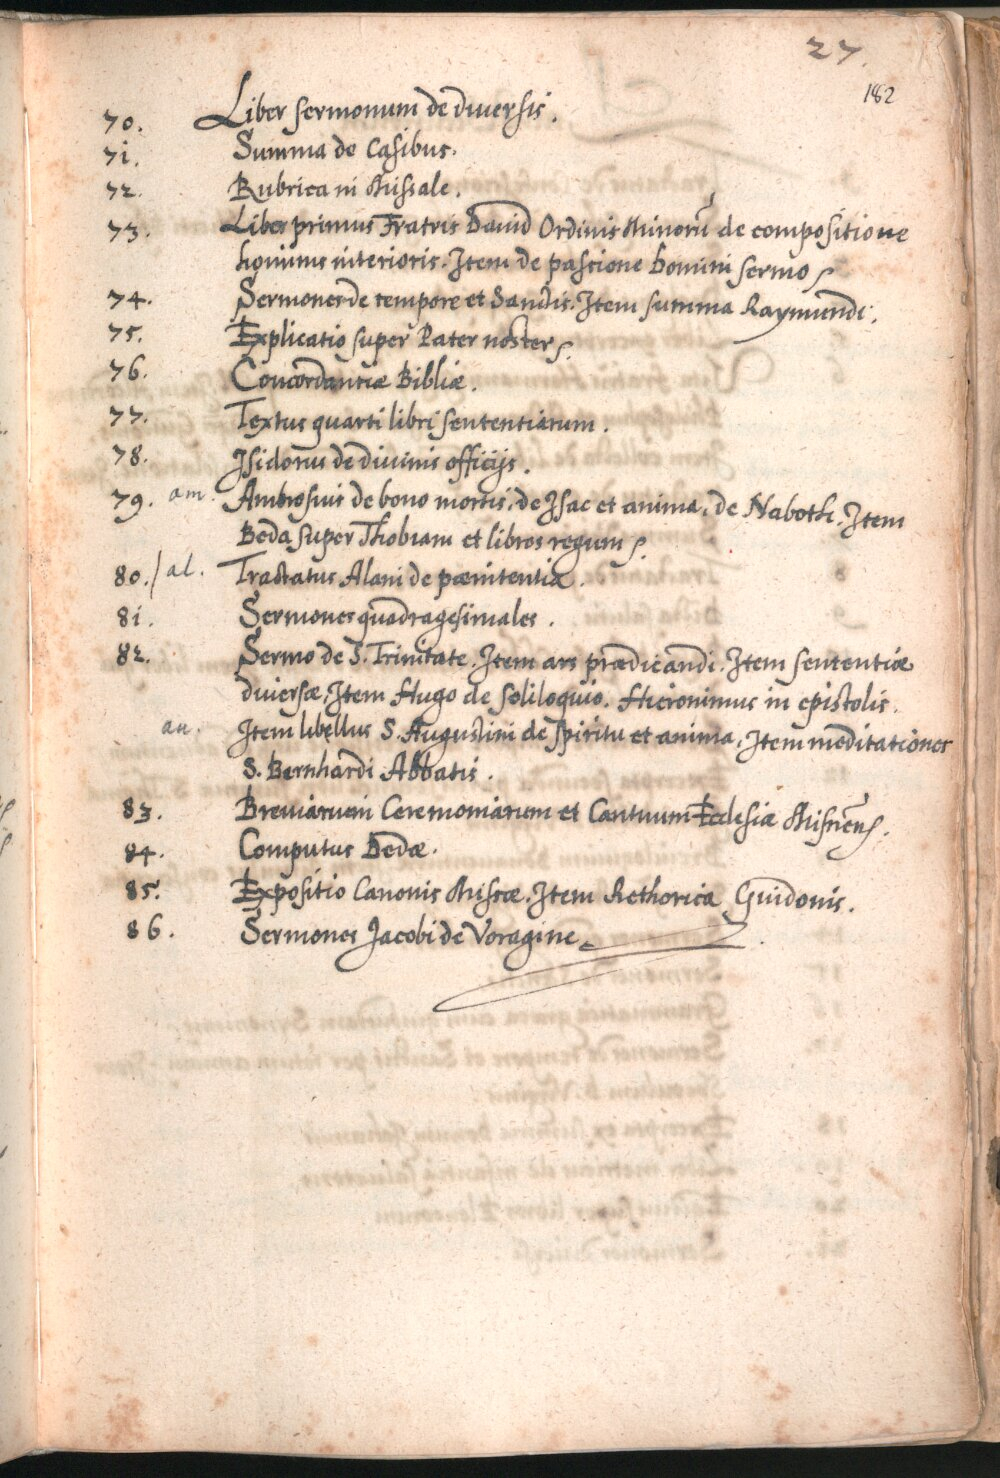 27.
182
70. Liber sermonum de diversis.
71. Summa de Casibus.
72. Rubrica in Missale.
73. Liber primus Fratris David Ordinis Minorũ de compositione
hominis interioris. Item de passione Domini sermo
74. Sermones de tempore et Sanctis. Item summa Raymundi.
75. Explicatio super Pater noster
76. Concordantiæ Bibliæ.
77. Textus quarti libri sententiarum.
78. Isidorus de divinis officijs.
79. am. Ambrosius de bono mortis, de Isac et anima, de Naboth. Item
Beda super Thobiam et libros regum
80. al. Tractatus Alani de pænitentia.
81. Sermones quadragesimales.
82. Sermo de S. Trinitate. Item ars prædicandi. Item sententiæ
diversæ, Item Hugo de soliloquio. Hieronimus in epistolis.
au. Item libellus S. Augustini de spiritu et anima, Item meditationes
S. Bernhardi Abbatis.
83. Breviarium Ceremoniarum et Cantuum Ecclesiæ Misnens.
84. Computus Bedæ.
85. Expositio Canonis Missæ. Item Rethorica Guidonis.
86. Sermones Jacobi de Voragine